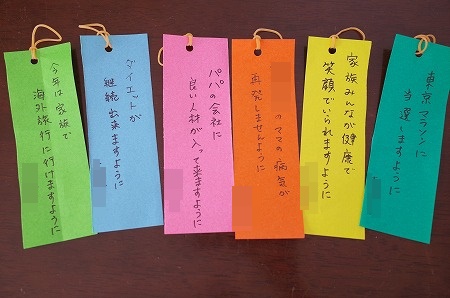 東京マラソンに
当選しますように
家族みんなが健康で
笑顔でいられますように
のママの病気が
再発しませんように
パパの会社に
良い人材が入って来ますように
ダイエットが
継続出来ますように
今年は家族で
海外旅行に行けますように